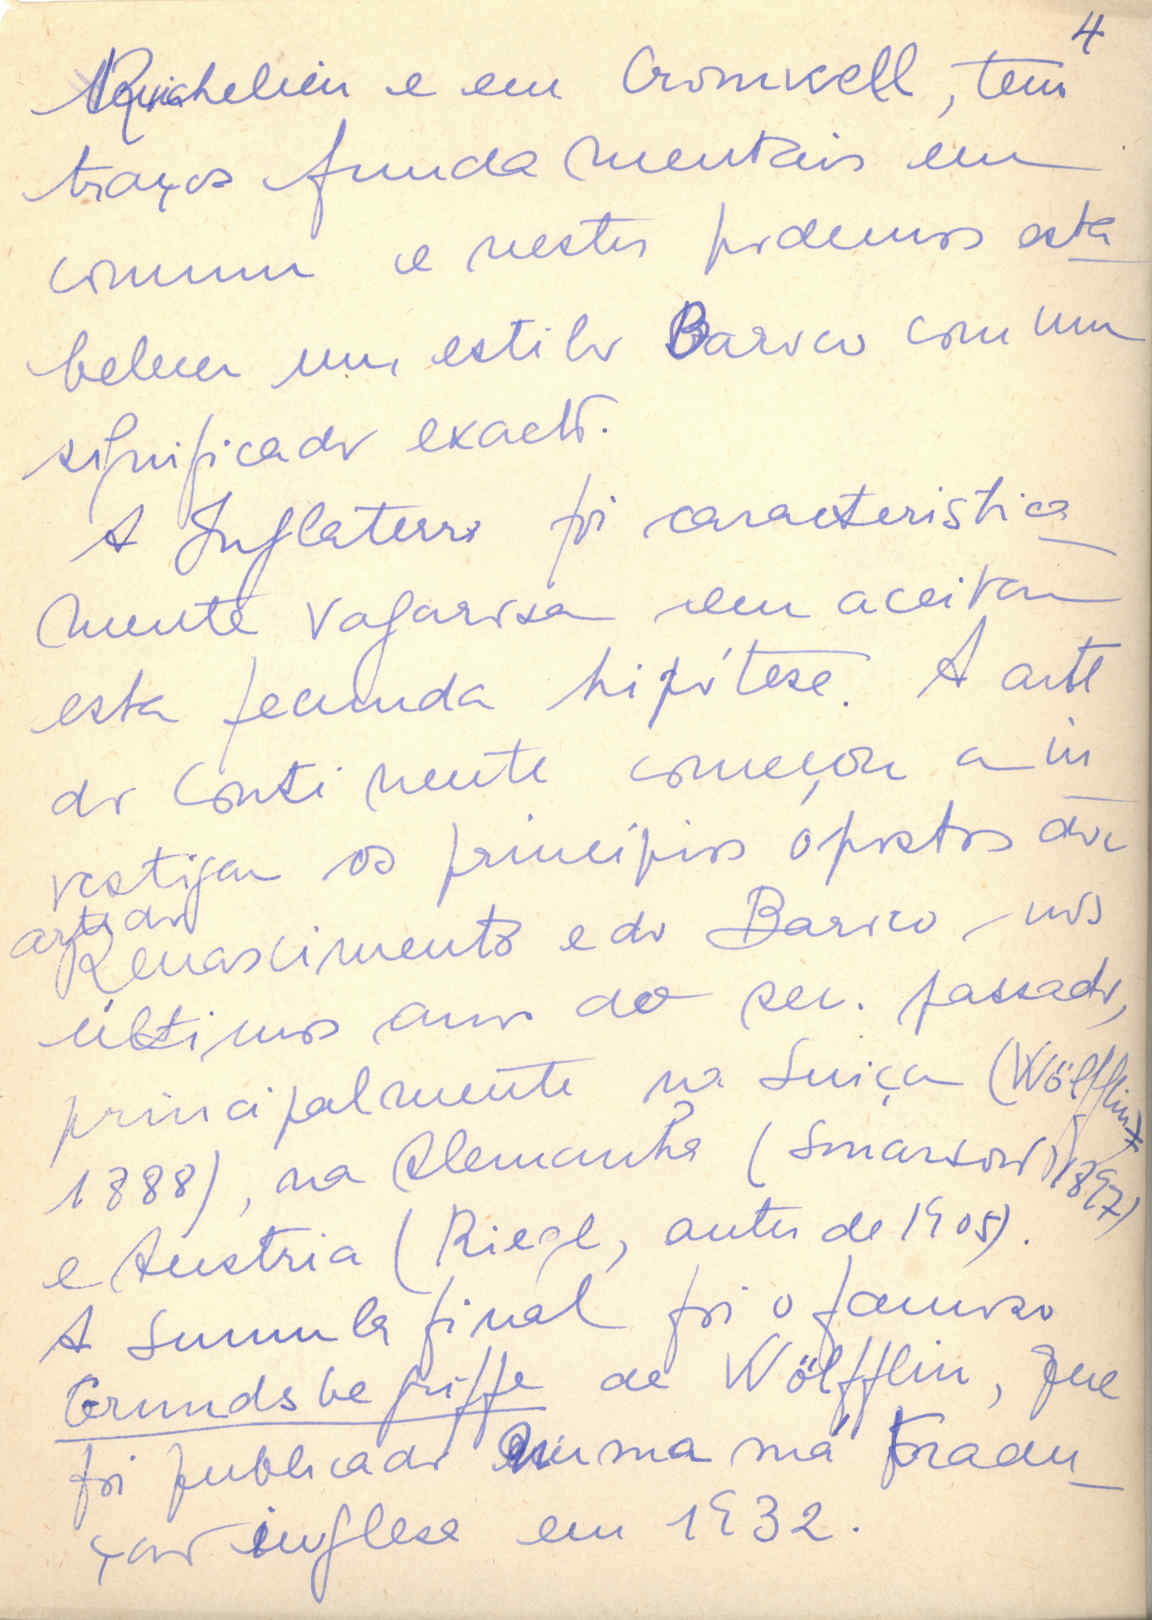 4
Richelieu e em Cromwell, tem
traços fundamentais em
comum e nestes podemos esta
belecer um estilo Barroco com um
significado exacto.
A Inglaterra foi caracteristica
mente vagarosa em aceitar
esta fecunda hipótese. A arte
do Continente começou a in
vestigar os princípios opostos da
arte do
Renascimento e do Barroco nos
últimos anos do sec. passado,
principalmente na Suiça (Wölfflin
1888), na Alemanha (Smarsow 1897)
e Austria (Riegl, antes de 1905).
A Summula final foi o famoso
Grundsbegriffe de Wölfflin, que
foi publicado numa má tradu
ção inglesa em 1932.